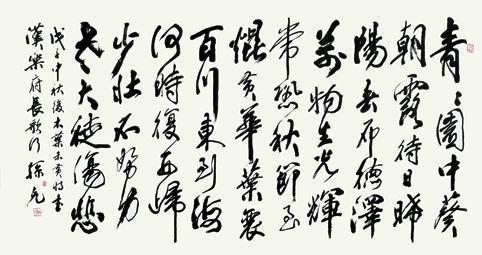 青々園中葵
朝露待日晞
陽春布德澤
萬物生光輝
常恐秋節至
焜黃華葉衰
百川東到海
何時復西歸
少壯不努力
老大徒傷悲
戊子中秋後木葉未黃時書
漢樂府長歌行